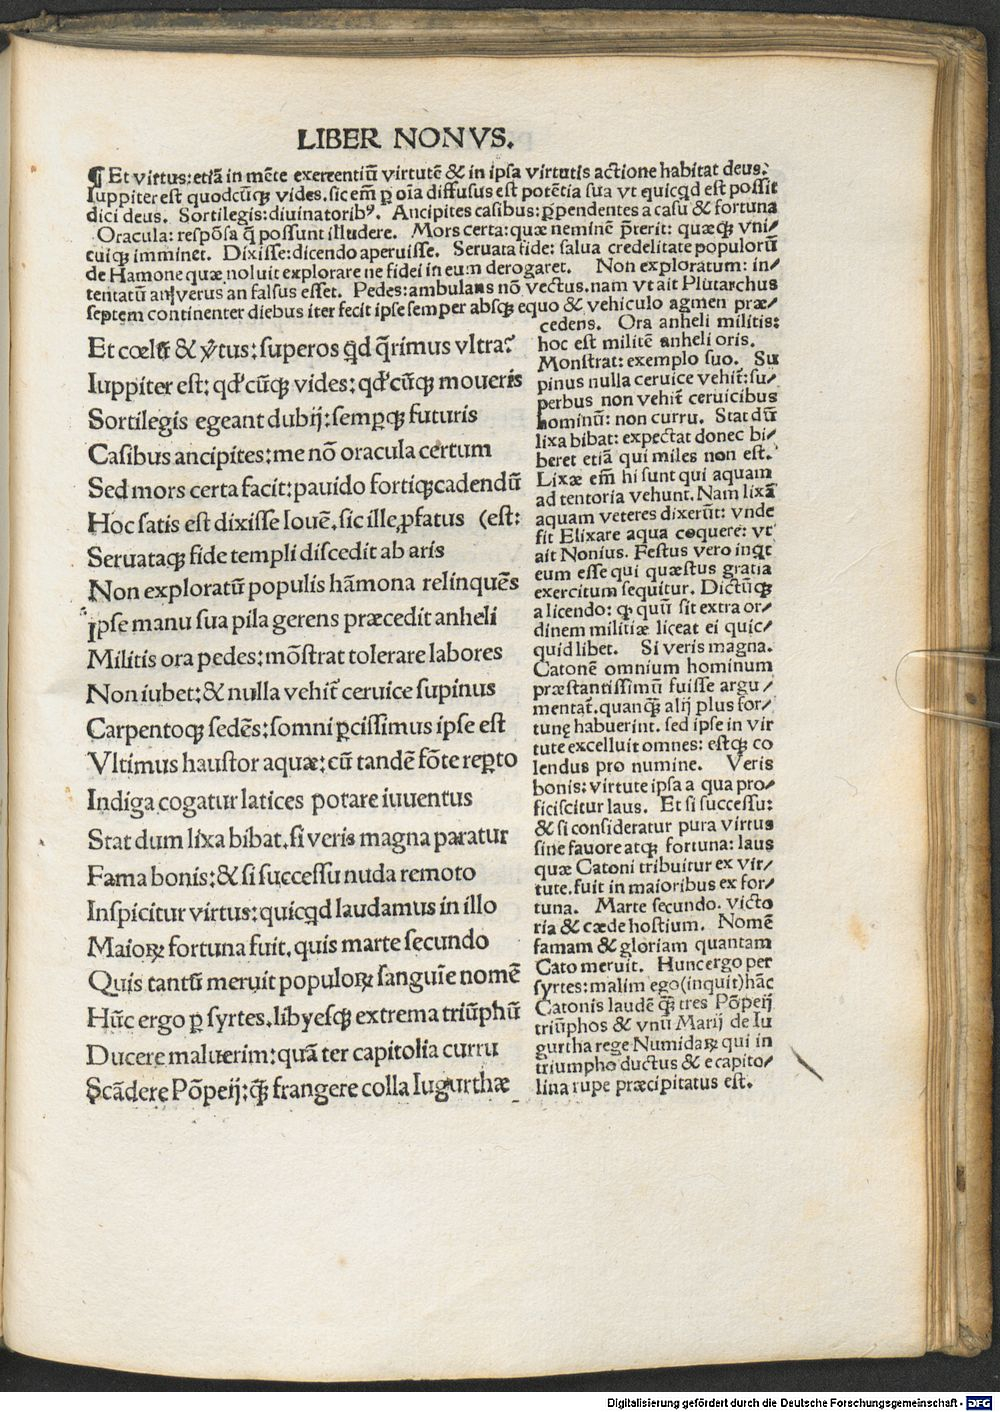 LIBER NONVS.
¶ Et virtus: etiā in mēte exercentiū virtutē & in ipsa virtutis actione habitat deus:
Iuppiter est quodcūq; vides. sic em̄ ꝑ oīa diffusus est potētia sua vt quicqd est possit
dici deus. Sortilegis: diuinatoribꝰ. Ancipites casibus: ꝑpendentes a casu & fortuna
Oracula: respōsa q̄ possunt illudere. Mors certa: quæ neminē p̄terit: quæq; vni⸗
cuiq; imminet. Dixisse: dicendo aperuisse. Seruata fide: salua credelitate populorū
de Hamone quæ noluit explorare ne fidei in eum derogaret. Non exploratum: in⸗
tentatū an verus an falsus esset. Pedes: ambulans nō vectus. nam vt ait Plutarchus
septem continenter diebus iter fecit ipse semper absq; equo & vehiculo agmen præ⸗
cedens. Ora anheli militis:
hoc est militē anheli oris.
Monstrat: exemplo suo. Su
pinus nulla ceruice vehit̄: su⸗
perbus non vehit̄ ceruicibus
hominū: non curru. Stat dū
lixa bibat: expectat donec bi⸗
beret etiā qui miles non est.
Lixæ em̄ hi sunt qui aquam
ad tentoria vehunt. Nam lixā
aquam veteres dixerūt: vnde
fit Elixare aqua coquere: vt
ait Nonius. Festus vero inqt
eum esse qui quæstus gratia
exercitum sequitur. Dictūq;
a licendo: ꝙ quū sit extra or⸗
dinem militiæ liceat ei quic⸗
quid libet. Si veris magna.
Catonē omnium hominum
præstantissimū fuisse argu⸗
mentat̄. quanq̄ alij plus for⸗
tunę habuerint. sed ipse in vir
tute excelluit omnes: estq; co
lendus pro numine. Veris
bonis: virtute ipsa a qua pro⸗
ficiscitur laus. Et si successu:
& si consideratur pura virtus
sine fauore atq; fortuna: laus
quæ Catoni tribuitur ex vir⸗
tute. fuit in maioribus ex for⸗
tuna. Marte secundo. victo
ria & cæde hostium. Nomē
famam & gloriam quantam
Cato meruit. Hunc ergo per
syrtes: malim ego (inquit) hāc
Catonis laudē q̄ tres Pōpeij
triūphos & vnū Marij de Iu
gurtha rege Numidaꝝ qui in
triumpho ductus & e capito⸗
lina rupe præcipitatus est.
Et cœlū & v̄tus: superos qd q̄rimus vltra?
Iuppiter est: qđcūq; vides: qđcūq; moueris
Sortilegis egeant dubij: sempq; futuris
Casibus ancipites: me nō oracula certum
Sed mors certa facit: pauido fortiq; cadendū
Hoc satis est dixisse Iouē. sic ille ꝓfatus (est:
Seruataq; fide templi discedit ab aris
Non exploratū populis hāmona relinquēs
Ipse manu sua pila gerens præcedit anheli
Militis ora pedes: mōstrat tolerare labores
Non iubet: & nulla vehit̄ ceruice supinus
Carpentoq; sedēs: somni ꝑcissimus ipse est
Vltimus haustor aquæ: cū tandē fōte reꝑto
Indiga cogatur latices potare iuuentus
Stat dum lixa bibat. si veris magna paratur
Fama bonis: & si successu nuda remoto
Inspicitur virtus: quicqd laudamus in illo
Maioꝝ fortuna fuit. quis marte secundo
Quis tantū meruit populoꝝ sanguīe nomē
Hūc ergo ꝑ syrtes. libyesq; extrema triūphū
Ducere maluerim: quā ter capitolia curru
Scādere Pōpeij: q̄ frangere colla Iugurthæ
Digitalisierung gefördert durch die Deutsche Forschungsgemeinschaft - DFG